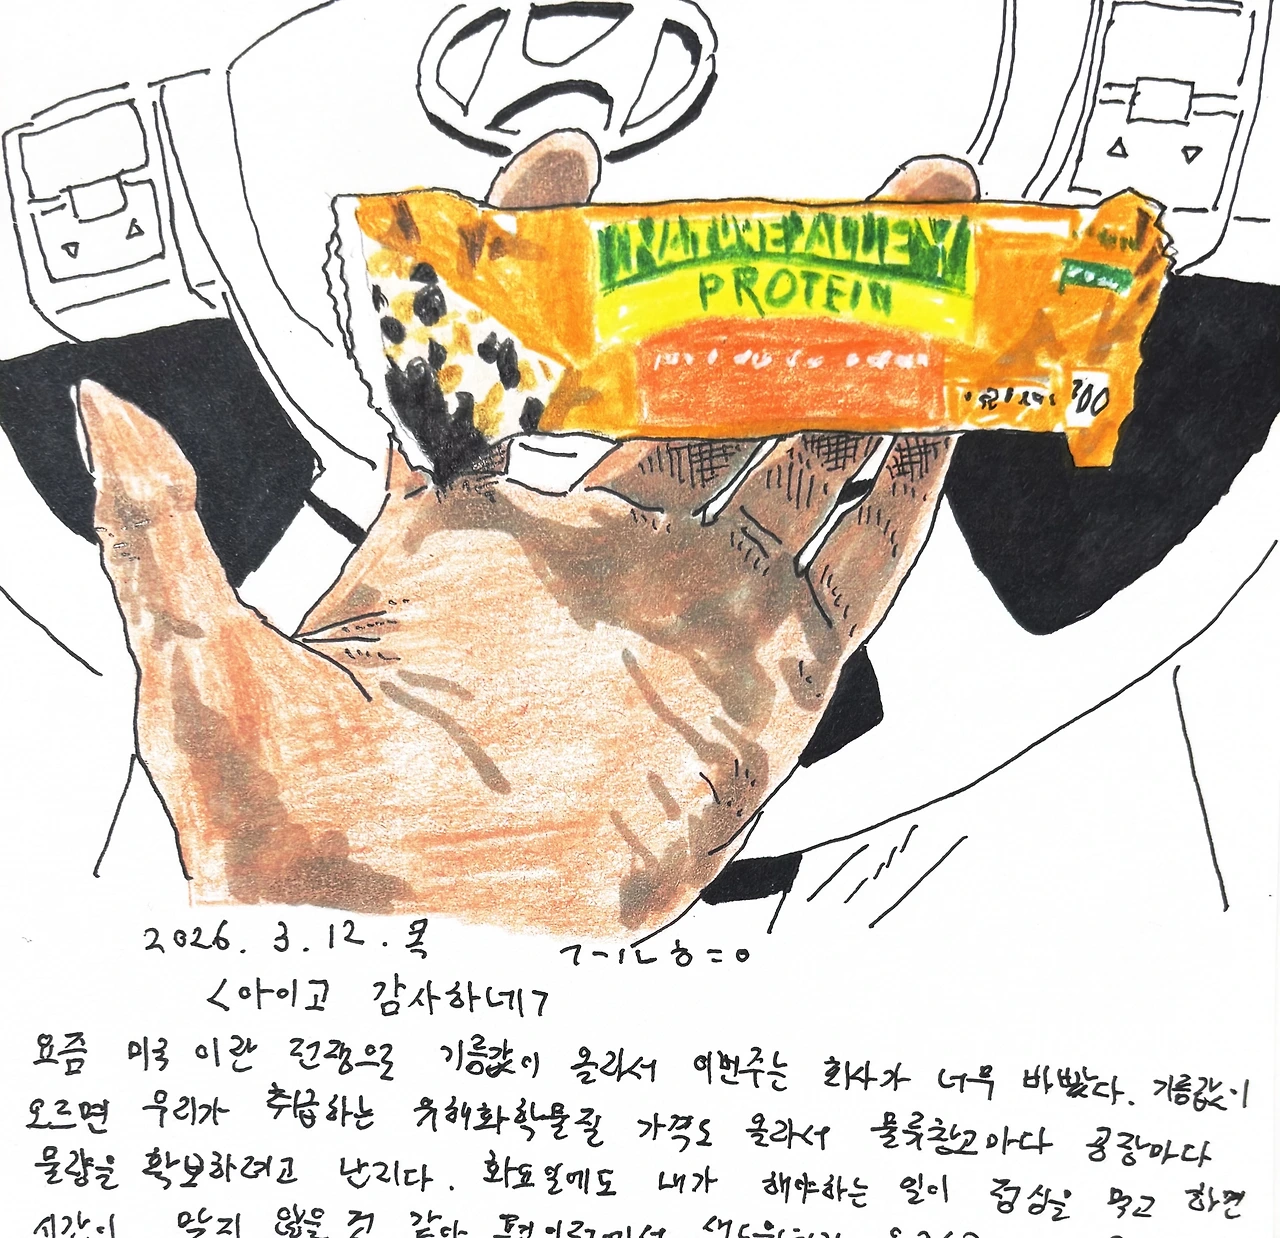 NATURE VALLEY
PROTEIN
2026. 3. 12. 목
<아이고 감사하네>
요즘 미국 이란 전쟁으로 기름값이 올라서 이번주는 회사가 너무 바빴다. 기름값이
오르면 우리가 취급하는 유해화학물질 가격도 올라서 물류창고마다 공장마다
물량을 확보하려고 난리다. 화요일에도 내가 해야하는 일이 점심을 먹고 하면
시간이 맞지 않을 것 같아